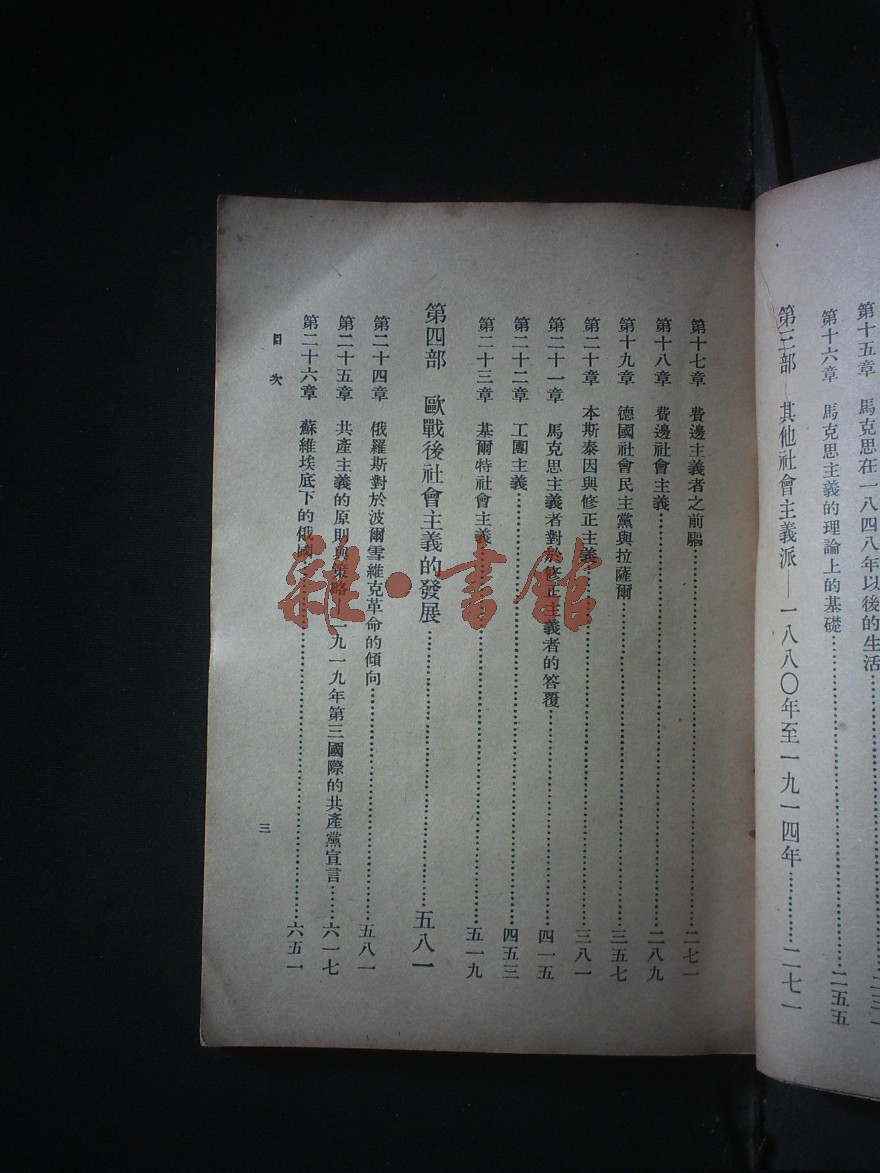 第十五章 馬克思在一八四八年以後的生活
第十六章 馬克思主義的理論上的基礎……二五五
第三部 其他社會主義派——一八八〇年至一九一四年……二七一
第十七章 費邊主義者之前驅……二七一
第十八章 費邊社會主義……二八九
第十九章 德國社會民主黨與拉薩爾……三五七
第二十章 本斯泰因與修正主義……三八一
第二十一章 馬克思主義者對於修正主義者的答覆……四一五
第二十二章 工團主義……四五三
第二十三章 基爾特社會主義……五一九
第四部 歐戰後社會主義的發展……五八一
第二十四章 俄羅斯對於波爾雪維克革命的傾向……五八一
第二十五章 共產主義的原則與策略——一九一九年第三國際的共產黨宣言……六一七
第二十六章 蘇維埃底下的俄國……六五一
目次
三
雜·書館